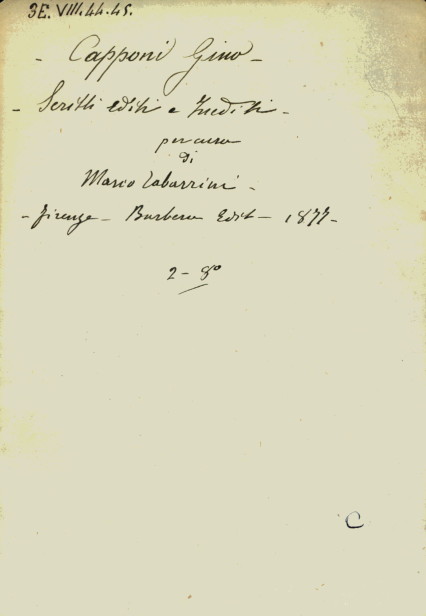 3E.VIII.44.45.
- Capponi Gino -
- Scritti editi e Inediti -
per cura
di
Marco Tabarrini -
- Firenze - Barbera Edit - 1877 -
2 - 8º
C